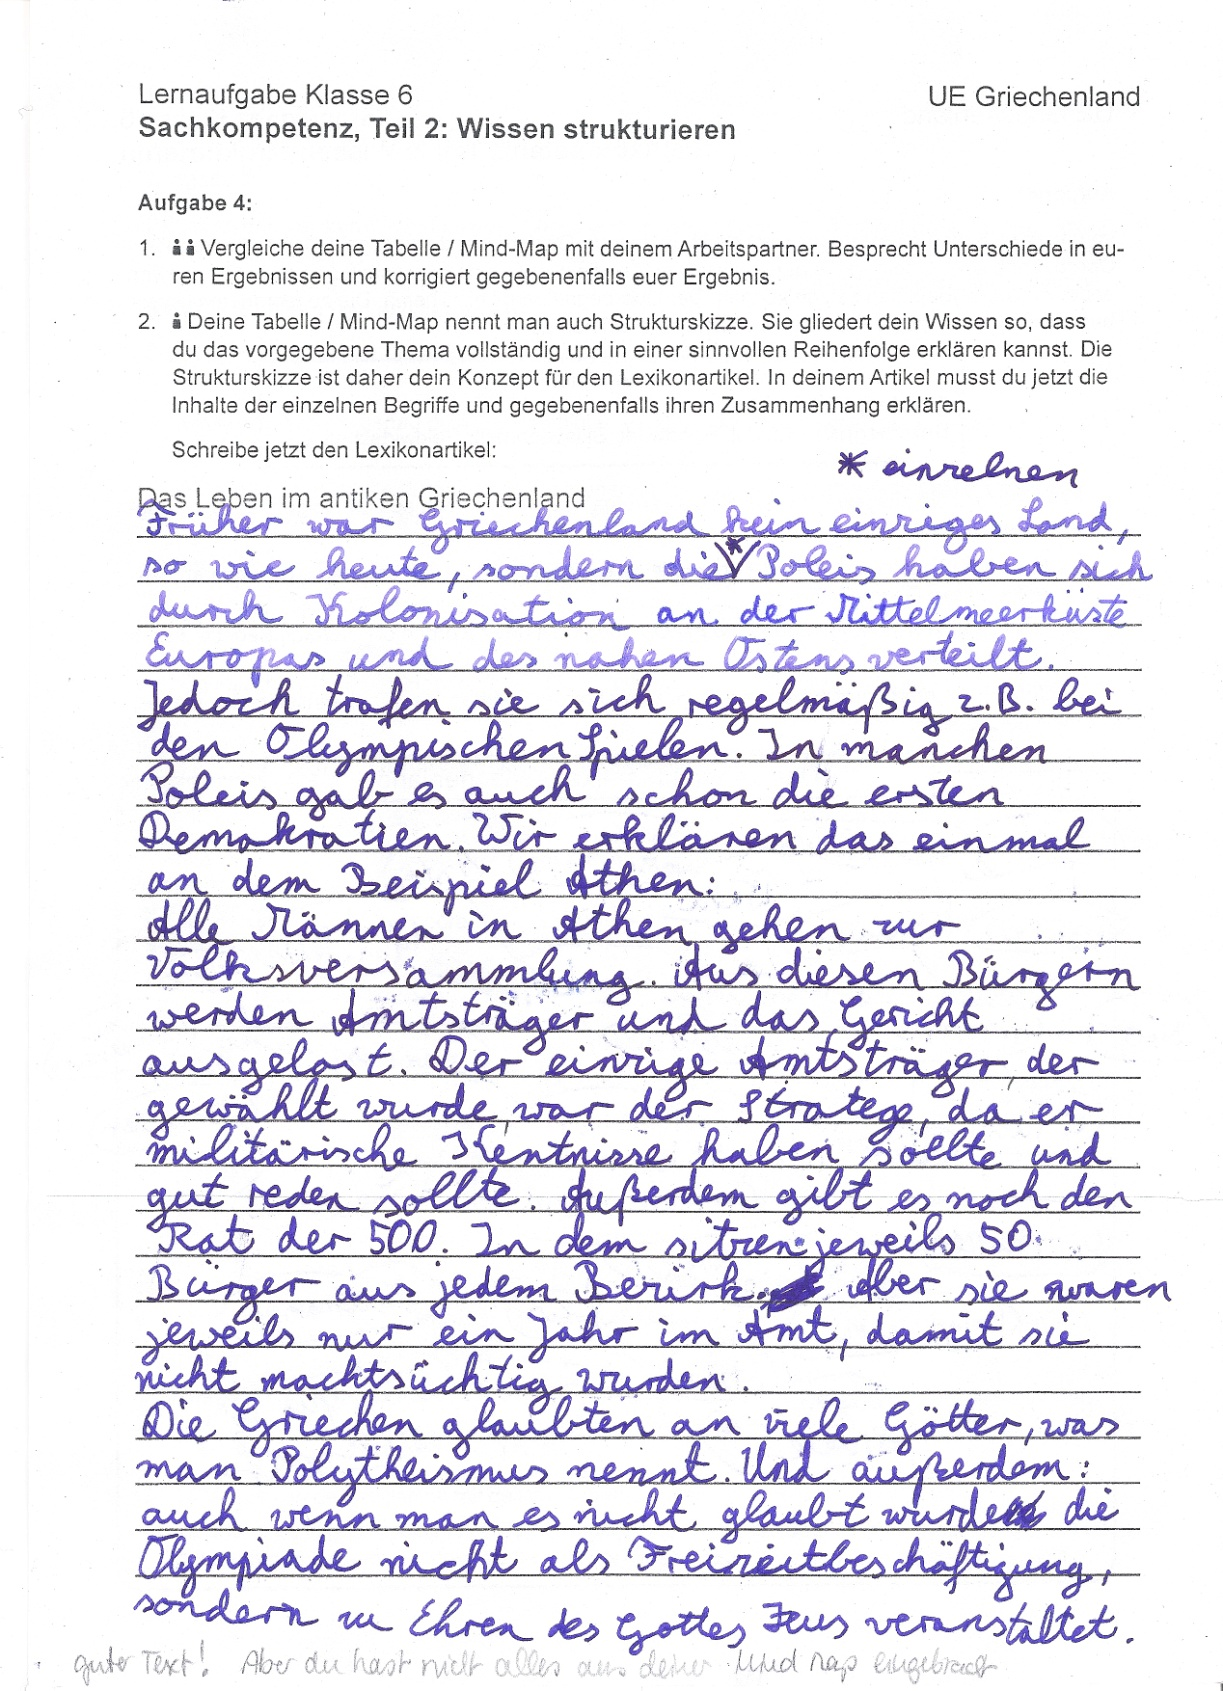 Lernaufgabe Klasse 6 UE Griechenland
Sachkompetenz, Teil 2: Wissen strukturieren
Aufgabe 4:
1. Vergleiche deine Tabelle / Mind-Map mit deinem Arbeitspartner. Besprecht Unterschiede in eu-
ren Ergebnissen und korrigiert gegebenenfalls euer Ergebnis.
2. Deine Tabelle / Mind-Map nennt man auch Strukturskizze. Sie gliedert dein Wissen so, dass
du das vorgegebene Thema vollständig und in einer sinnvollen Reihenfolge erklären kannst. Die
Strukturskizze ist daher dein Konzept für den Lexikonartikel. In deinem Artikel musst du jetzt die
Inhalte der einzelnen Begriffe und gegebenenfalls ihren Zusammenhang erklären.
Schreibe jetzt den Lexikonartikel:
* einzelnen
Das Leben im antiken Griechenland
Früher war Griechenland kein einziges Land,
so wie heute, sondern die * Poleis haben sich
durch Kolonisation an der Mittelmeerküste
Europas und des nahen Ostens verteilt.
Jedoch trafen sie sich regelmäßig z.B. bei
den Olympischen Spielen. In manchen
Poleis gab es auch schon die ersten
Demokratien. Wir erklären das einmal
an dem Beispiel Athen:
Alle Männer in Athen gehen zur
Volksversammlung. Aus diesen Bürgern
werden Amtsträger und das Gericht
ausgelost. Der einzige Amtsträger, der
gewählt wurde, war der Stratege, da er
militärische Kentnisse haben sollte und
gut reden sollte. Außerdem gibt es noch den
Rat der 500. In dem sitzen jeweils 50
Bürger aus jedem Bezirk. Aber sie waren
jeweils nur ein Jahr im Amt, damit sie
nicht machtsüchtig wurden.
Die Griechen glaubten an viele Götter, was
man Polytheismus nennt. Und außerdem:
auch wenn man es nicht glaubt wurde die
Olympiade nicht als Freizeitbeschäftigung,
sondern zu Ehren des Gottes Zeus veranstaltet.
guter Text! Aber du hast nicht alles aus deiner Mind Map eingebracht